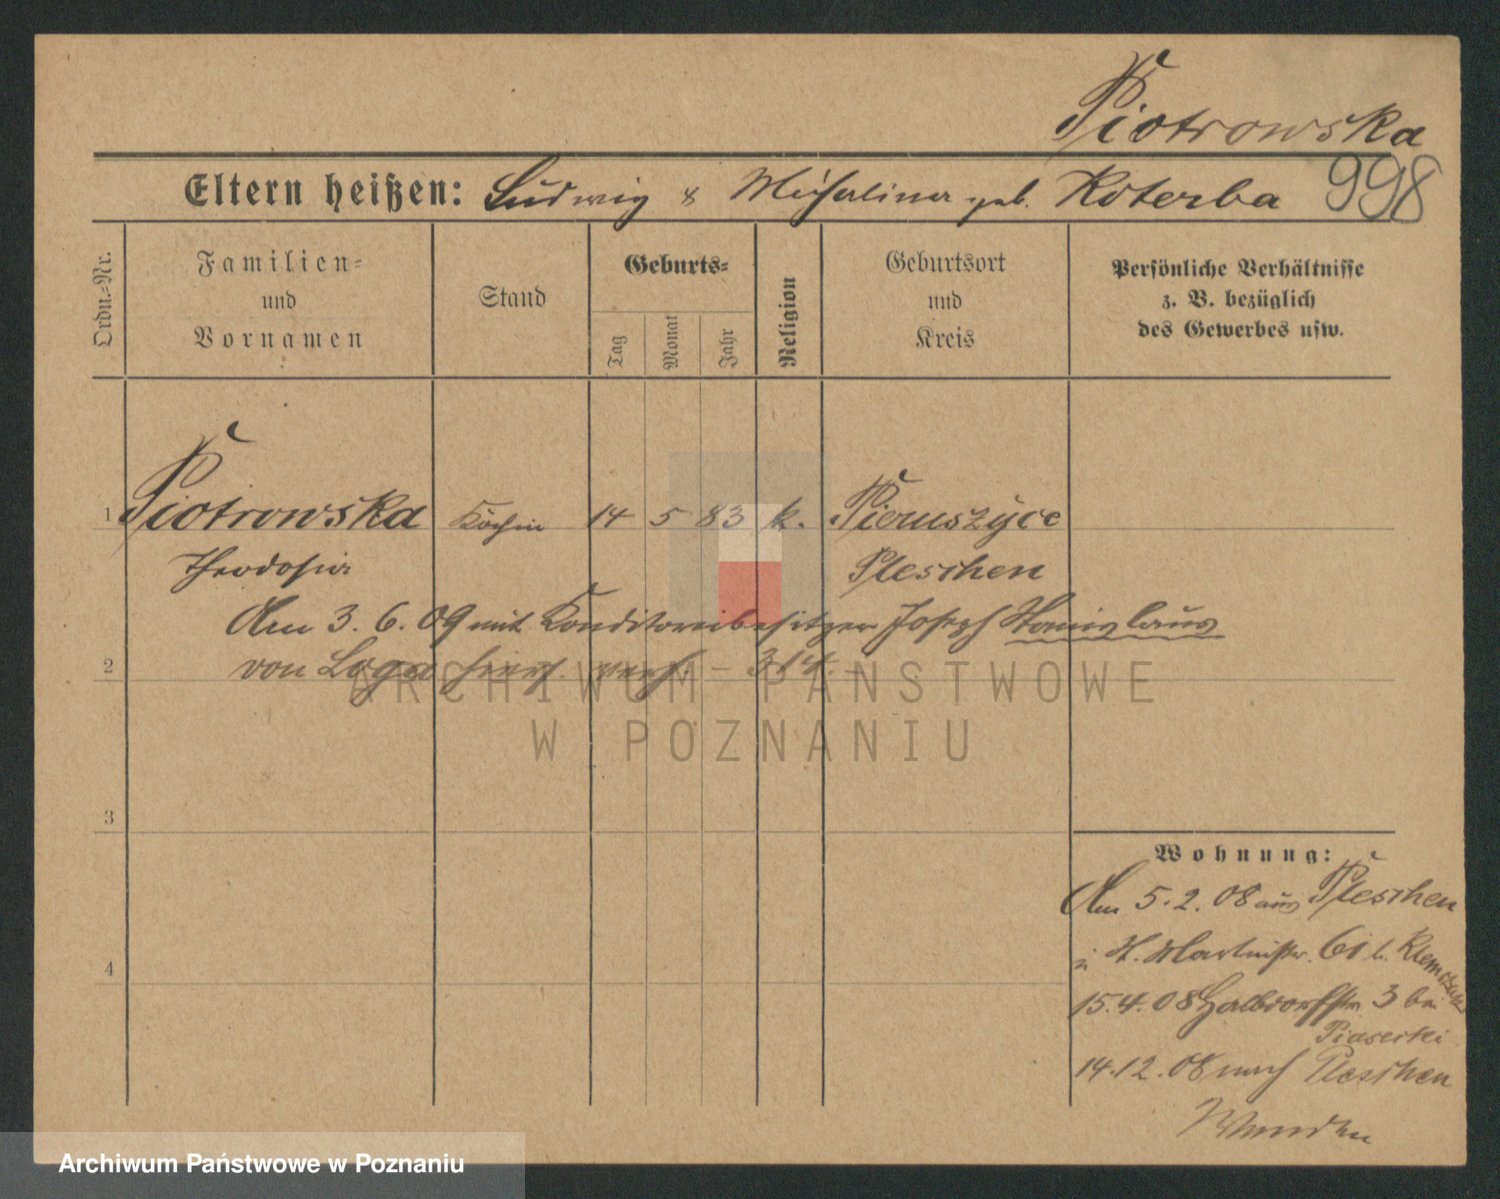 Piotrowska
Eltern heißen: Ludwig & Michalina geb. Koterba 998
Ordn.-Nr.
Familien-
und
Vornamen
Stand
Geburts-
Tag
Monat
Jahr
Religion
Geburtsort
und
Kreis
Persönliche Verhältnisse
z. B. bezüglich
des Gewerbes usw.
1 Piotrowska Köchin 14 5 83 k. Pieruszyce
Theodosia Pleschen
Am 3. 6. 09 mit Konditoreibesitzer Joseph Stanislaus
2 von Loga hier verh. 314.
3
4
Wohnung:
Am 5. 2. 08 aus Pleschen
St. Martinstr. 61 b.
15. 4. 08 Halbdorfstr 3 bei
Piasecki
14. 12. 08 nach Pleschen
ARCHIWUM PAŃSTWOWE
W POZNANIU
Archiwum Państwowe w Poznaniu